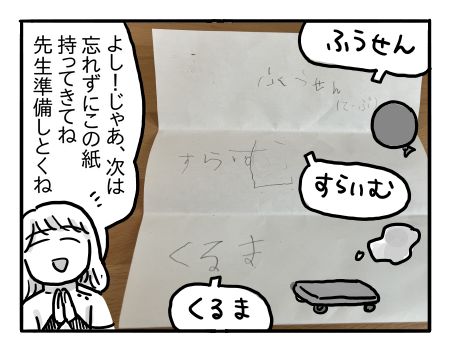 よし!じゃあ、次は
忘れずにこの紙
持ってきてね
先生準備しとくね
ふうせん
ふうせん
すらいむ
すらいむ
くるま
くるま